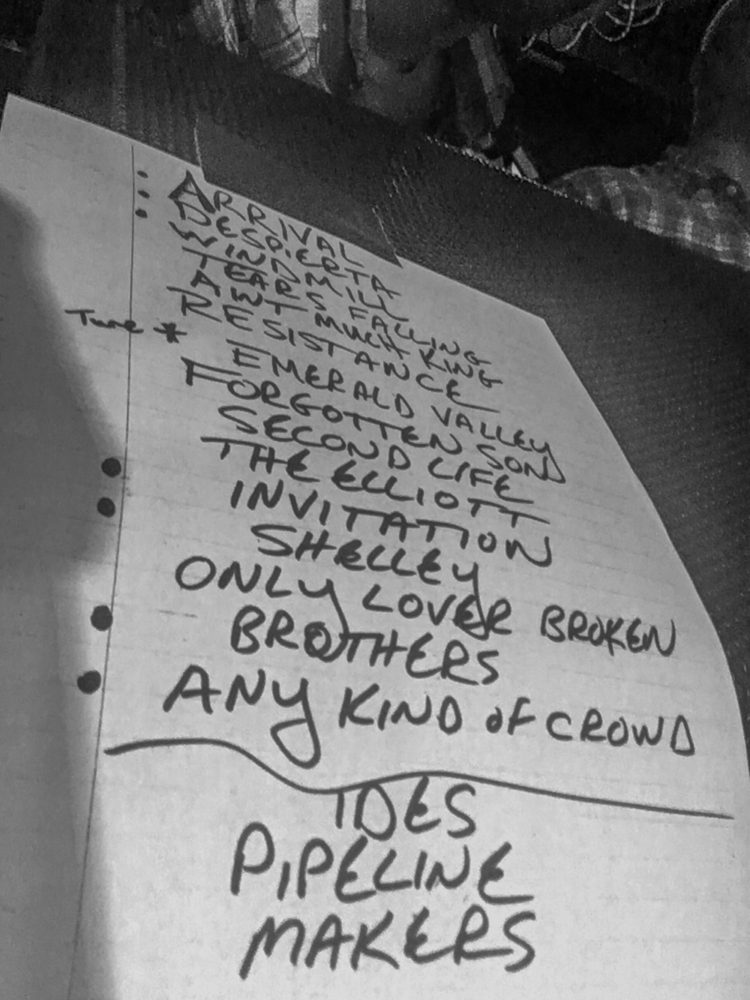 ARRIVAL
DESPIERTA
WINDMILL
TEARS FALLING
AIN'T MUCH KING
Tune * RESISTANCE
EMERALD VALLEY
FORGOTTEN SON
SECOND LIFE
THE ELLIOTT
INVITATION
SHELLEY
ONLY LOVER BROKEN
BROTHERS
ANY KIND OF CROWD
IDES
PIPELINE
MAKERS